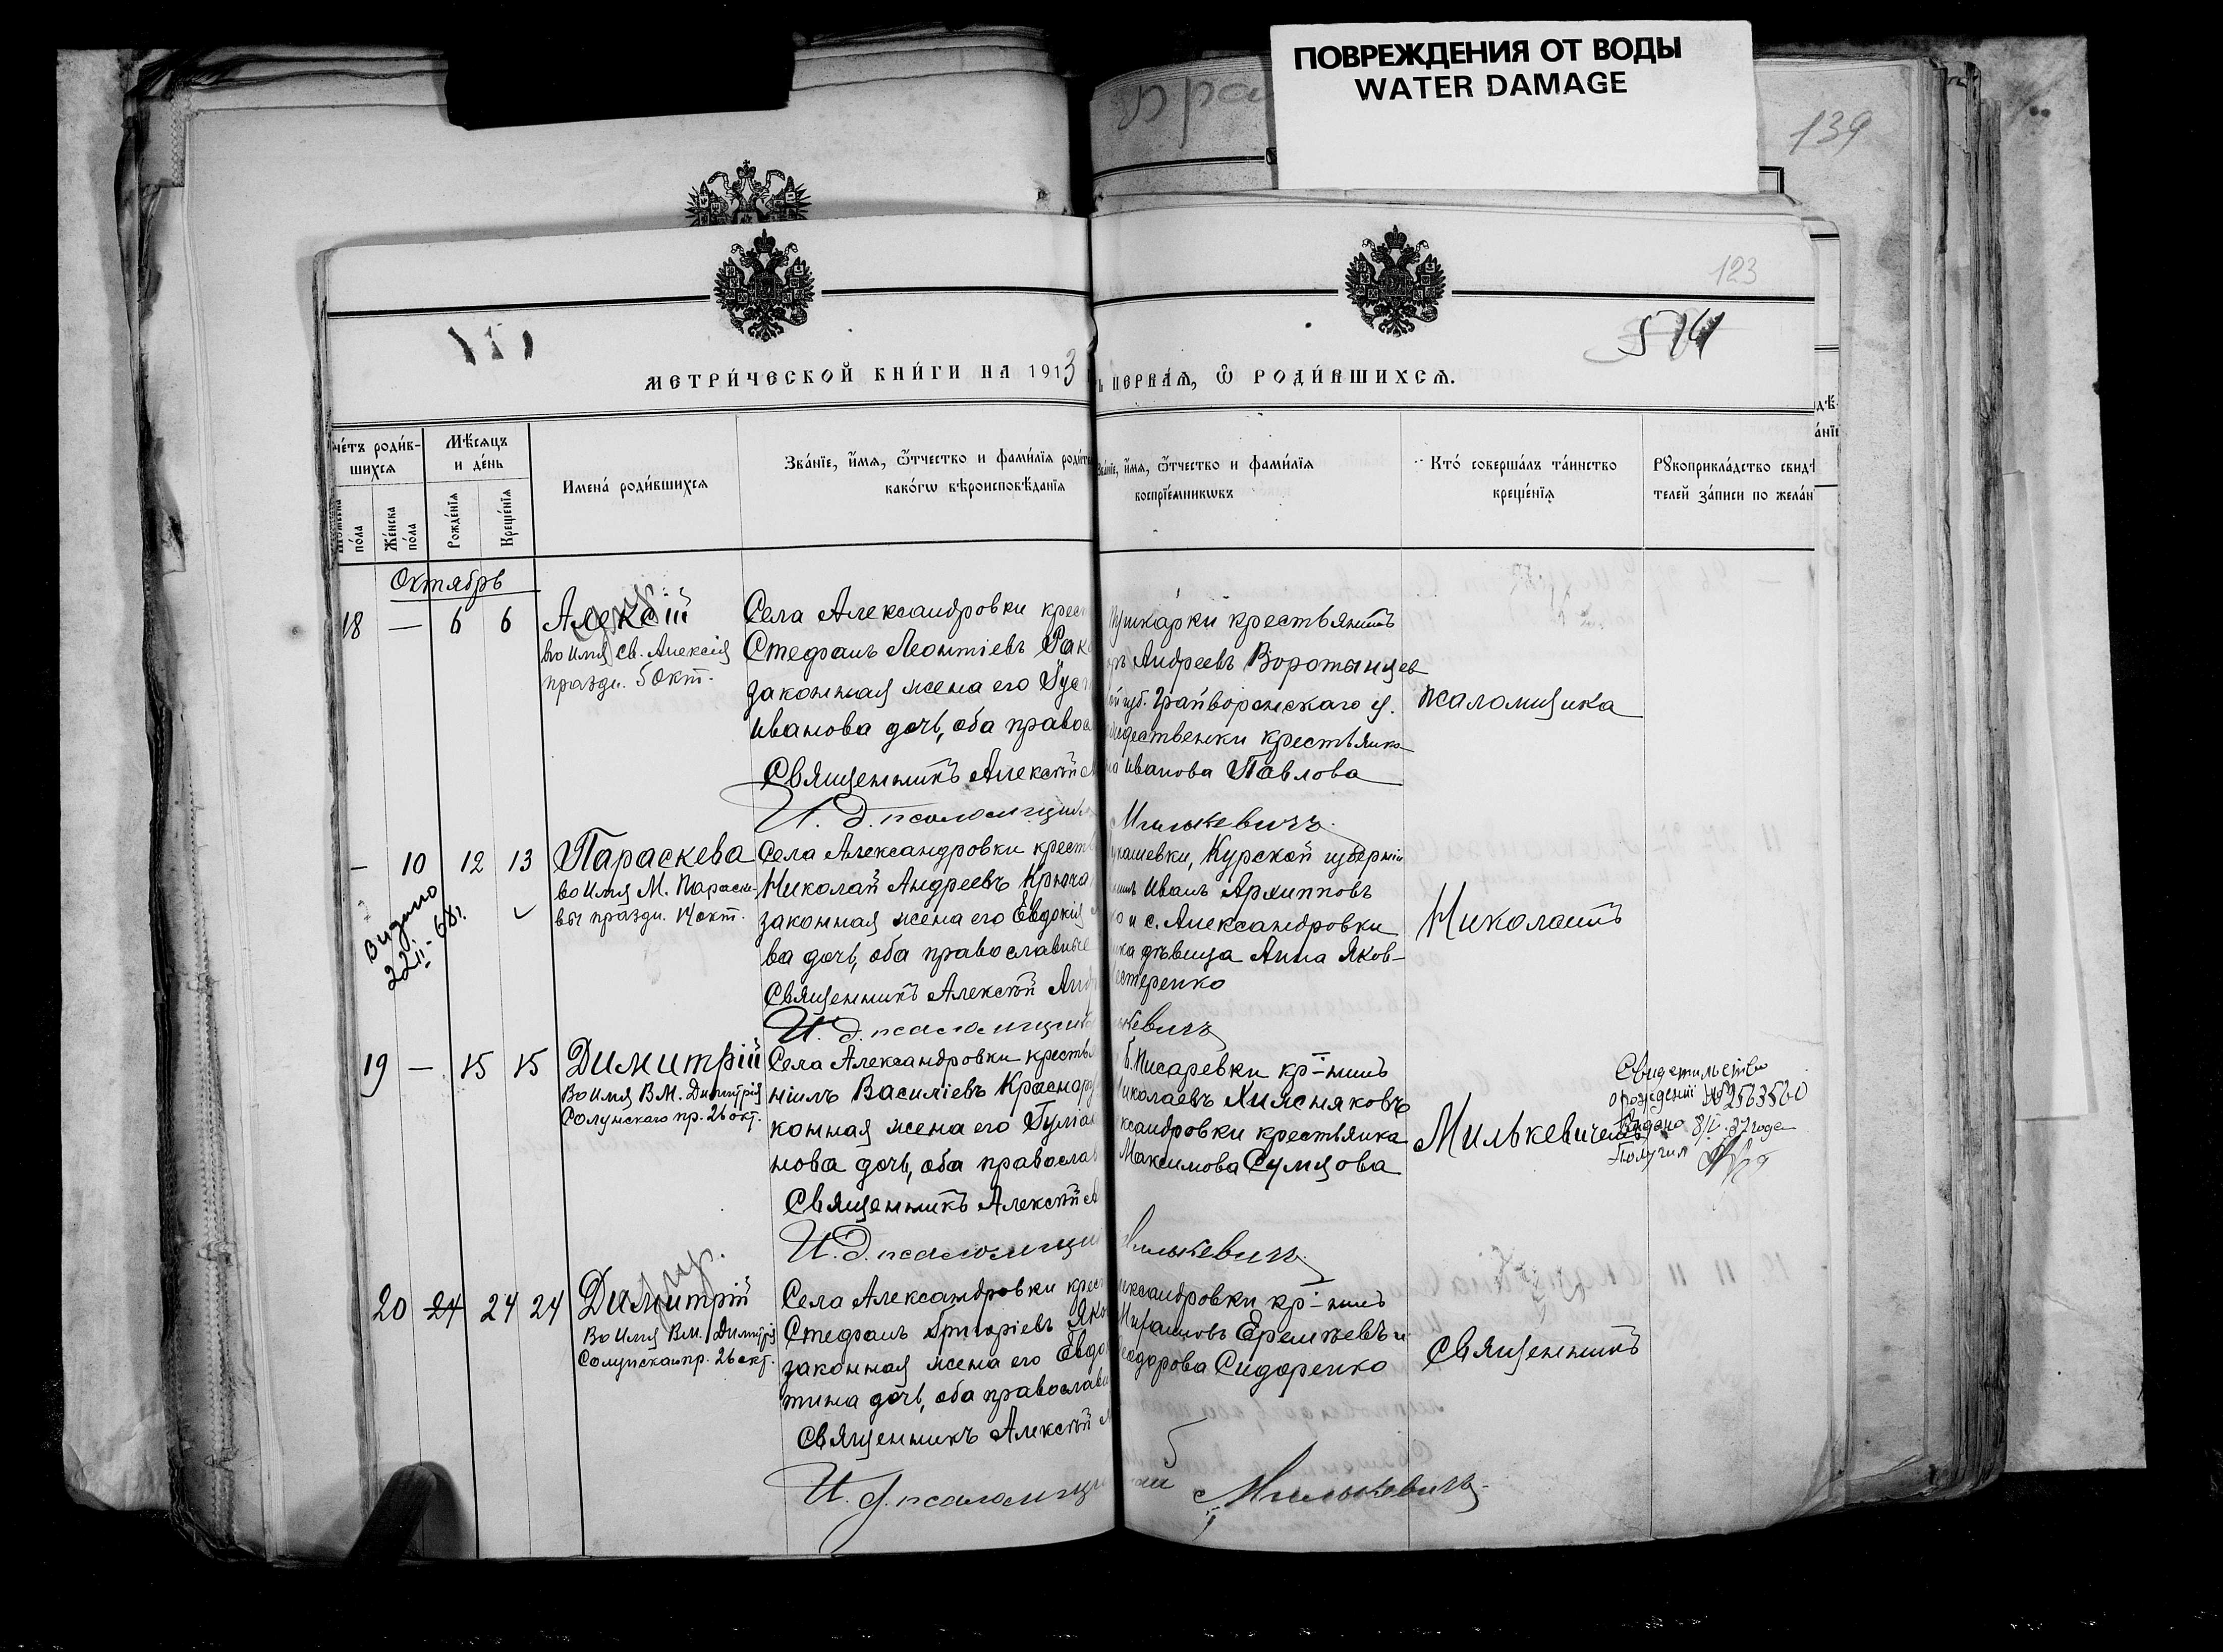 ПОВРЕЖДЕНИЯ ОТ ВОДЫ
WATER DAMAGE
139
123
МЕТРИ́ЧЕСКОЙ КНИ́ГИ НА 1913
ПЕРВАѦ, Ѿ РОДИ́ВШИХСѦ.
че́тъ роди́в-
шихсѧ
Мѣ́сѧцъ
и де́нь
по́ла
Же́нска
по́ла
Рожде́нїѧ
Креще́нїѧ
Имена́ роди́вшихсѧ
Зва́нїе, и́мѧ, ѿтчество и фами́лїѧ роди́те
како́гѡ вѣроисповѣ́данїѧ
и́мѧ, ѿтчество и фами́лїѧ
воспрїе́мникѡвъ
Кто́ соверша́лъ та́инство
креще́нїѧ
Рꙋкоприкла́дство свид
телей за́писи по жела́н
Октябрь
18 — 6 6
Алексій
во имя св. Алексія
праздн. 5 Окт.
Села Александровки крес
Стефанъ Леонтіевъ Рак
законная жена его
Иванова дочь, оба правос
Священникъ Алексѣй
И. д. псаломщик
Пушкарки крестьянинъ
Андреевъ Воротынцев
губ. Грайворонскаго у.
крестьянка
Иванова Павлова
Милькевичъ.
псаломщика
— 10 12 13
Выдано
22 II - 68 г.
Параскева
во имя М. Параске-
вы праздн. 14 окт.
Села Александровки крестья
Николай Андреевъ Крюча
законная жена его Евдокія
ва дочь, оба православные
Священникъ Алексѣй Анд
И. д. псаломщик
кашевки, Курской губерніи
Иванъ Архипповъ
и с. Александровки
дѣвица Анна Яков-
естеренко
ькевичъ
Николаемъ
19 — 15 15
Димитрій
Во имя ВМ. Димитрія
Солунскаго пр. 26 окт.
Села Александровки крестья
ніилъ Василіевъ Краснору
конная жена его Іуліан
нова дочь, оба правосла
Священникъ Алексѣй А
И. д. псаломщи
Б. Писаревки кр-нинъ
иколаевъ Хижняковъ
ксандровки крестьянка
Максимова Сумцова
илькевичъ.
Милькевичемъ
Свидетельство
о рождении № 2563560
Выдано 8/I 37 года
Получил
20 24 24 24
Димитрій
Во имя Вм. Димитрія
Солунскаго пр. 26 окт.
Села Александровки крес
Стефанъ Григоріевъ Яко
законная жена его Евдо
тина дочь, оба православ
Священникъ Алексѣй
И. д. псаломщи
лександровки кр-нинъ
Еремѣевъ и
еодорова Сидоренко
Милькевичъ.
Священникъ